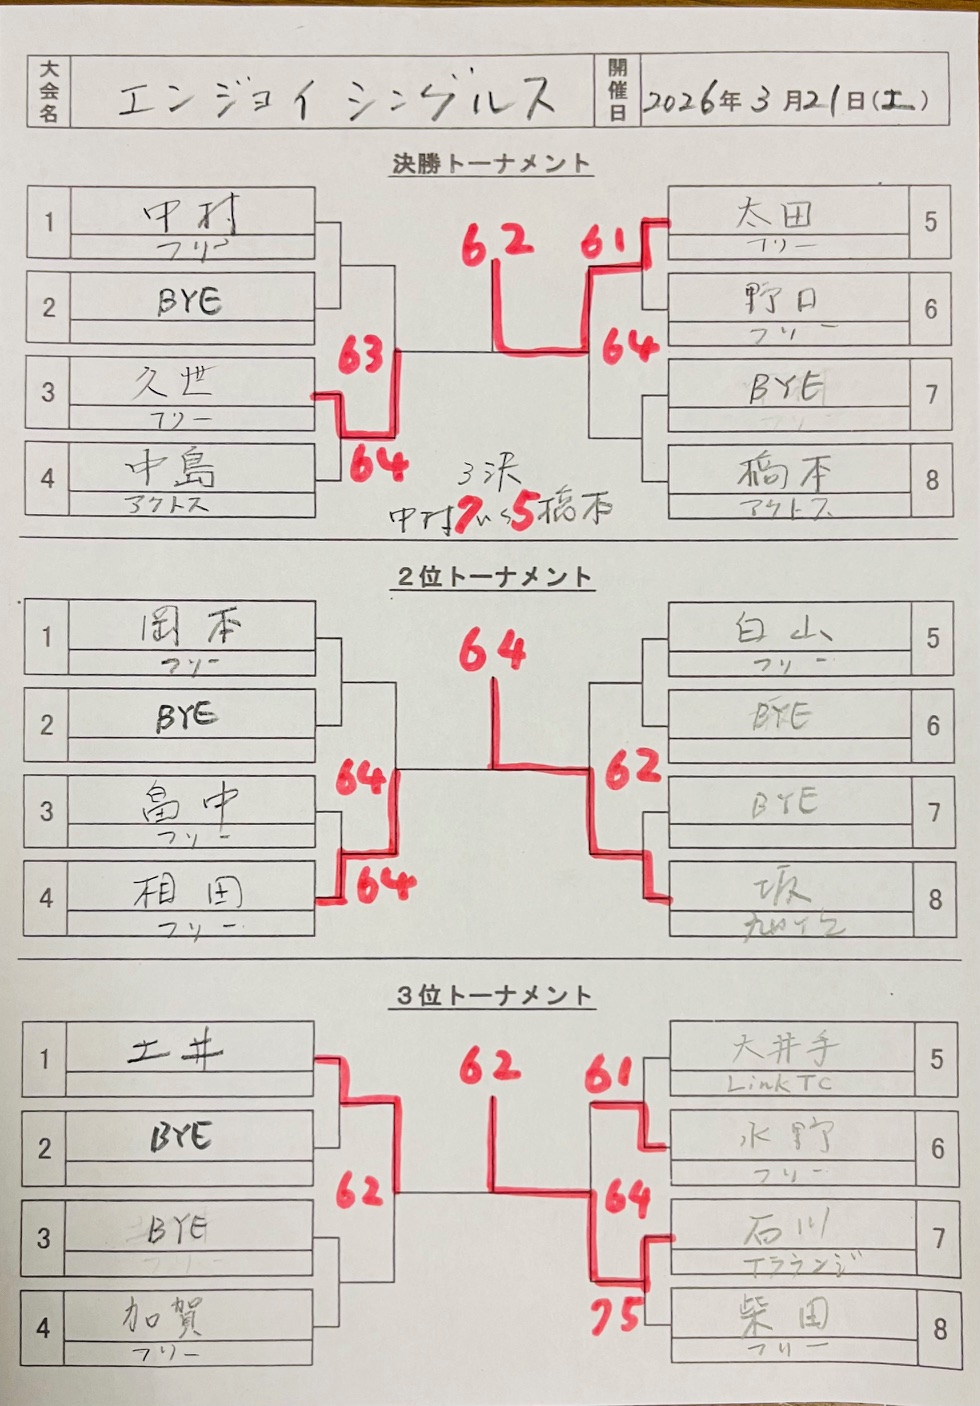 大会名 エンジョイシングルス 開催日 2026年3月21日(土)
決勝トーナメント
1 中村 フリー
2 BYE
3 久世 フリー
4 中島 アクトス
63
64
62
61
64
5 太田 フリー
6 野口 フリー
7 BYE
8 橋本 アクトス
3決
中村 7 vs 5 橋本
2位トーナメント
1 岡本 フリー
2 BYE
3 畠中 フリー
4 相田 フリー
64
64
64
62
5 白山 フリー
6 BYE
7 BYE
8 坂
3位トーナメント
1 土井
2 BYE
3 BYE
4 加賀 フリー
62
62
61
64
75
5 大井手 Link TC
6 水野 フリー
7 石川 Tラランジ
8 柴田 フリー